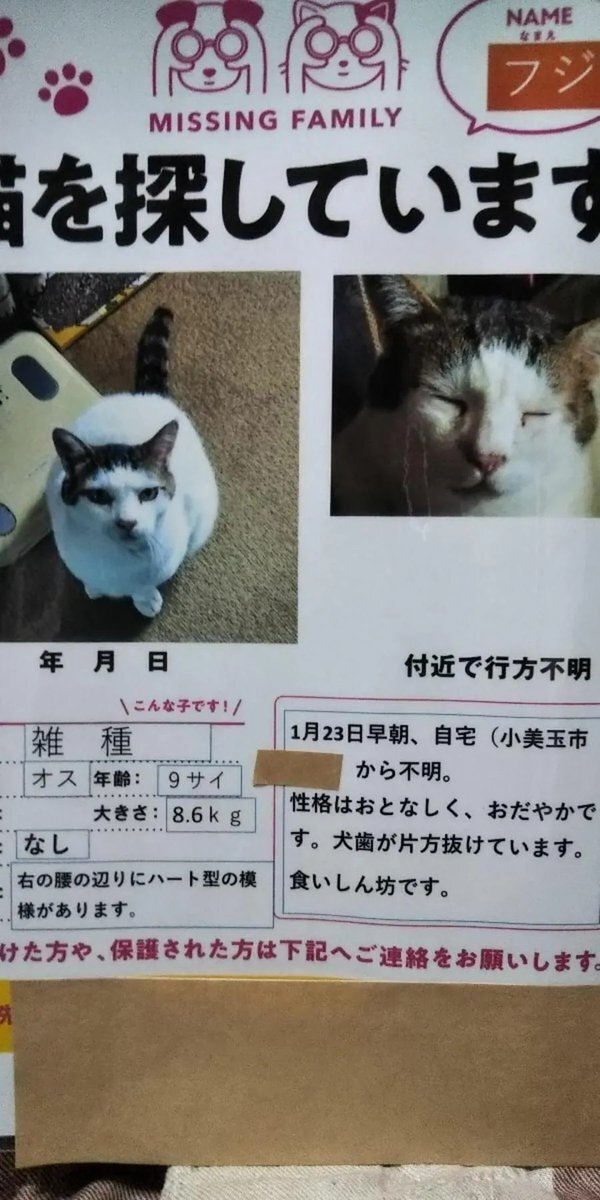 NAME
なまえ
フジ
MISSING FAMILY
猫を探しています
年 月 日
付近で行方不明
\こんな子です!/
雑 種
オス 年齢: 9サイ
大きさ: 8.6kg
なし
右の腰の辺りにハート型の模
様があります。
1月23日早朝、自宅（小美玉市
から不明。
性格はおとなしく、おだやかで
す。犬歯が片方抜けています。
食いしん坊です。
けた方や、保護された方は下記へご連絡をお願いします。